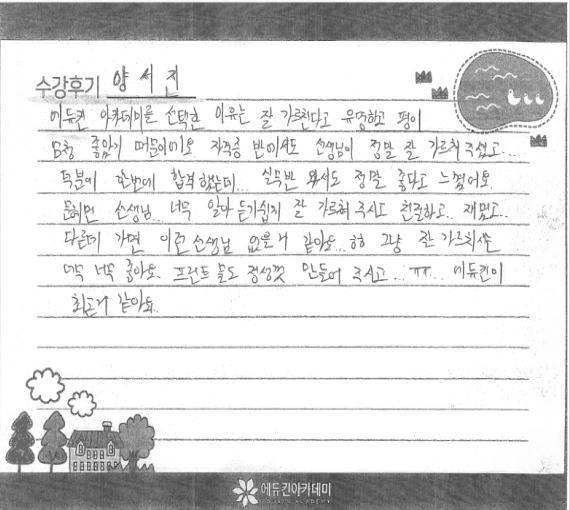 수강후기 양서진
에듀킨 아카데미를 선택한 이유는 잘 가르친다고 유명하고 평이
엄청 좋았기 때문이에요 자격증 반에서도 선생님이 정말 잘 가르쳐주셨고...
덕분에 한번에 합격했는데... 실무반 와서도 정말 좋다고 느꼈어요.
선생님... 너무 알아듣기쉽지 잘 가르쳐 주시고 친절하고.. 재밌고..
다른데 가면 이런 선생님 없을거 같아요...ㅎㅎ 그냥 잘 가르치시는
너무 너무 좋아요. 프린트 물도 정성껏 만들어 주시고...ㅠㅠ.. 에듀킨이
최고인거 같아요.
에듀킨아카데미